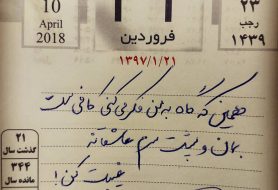 10
April
2018
۲۱
فروردین
۲۳
رجب
۱۴۳۹
۱۳۹۷/۱/۲۱
همین که گاه به من فکر می کنی کافی ست
بمان و پشت سرم عاشقانه
غیبت کن!
۲۱
گذشت سال
۳۴۴
مانده سال